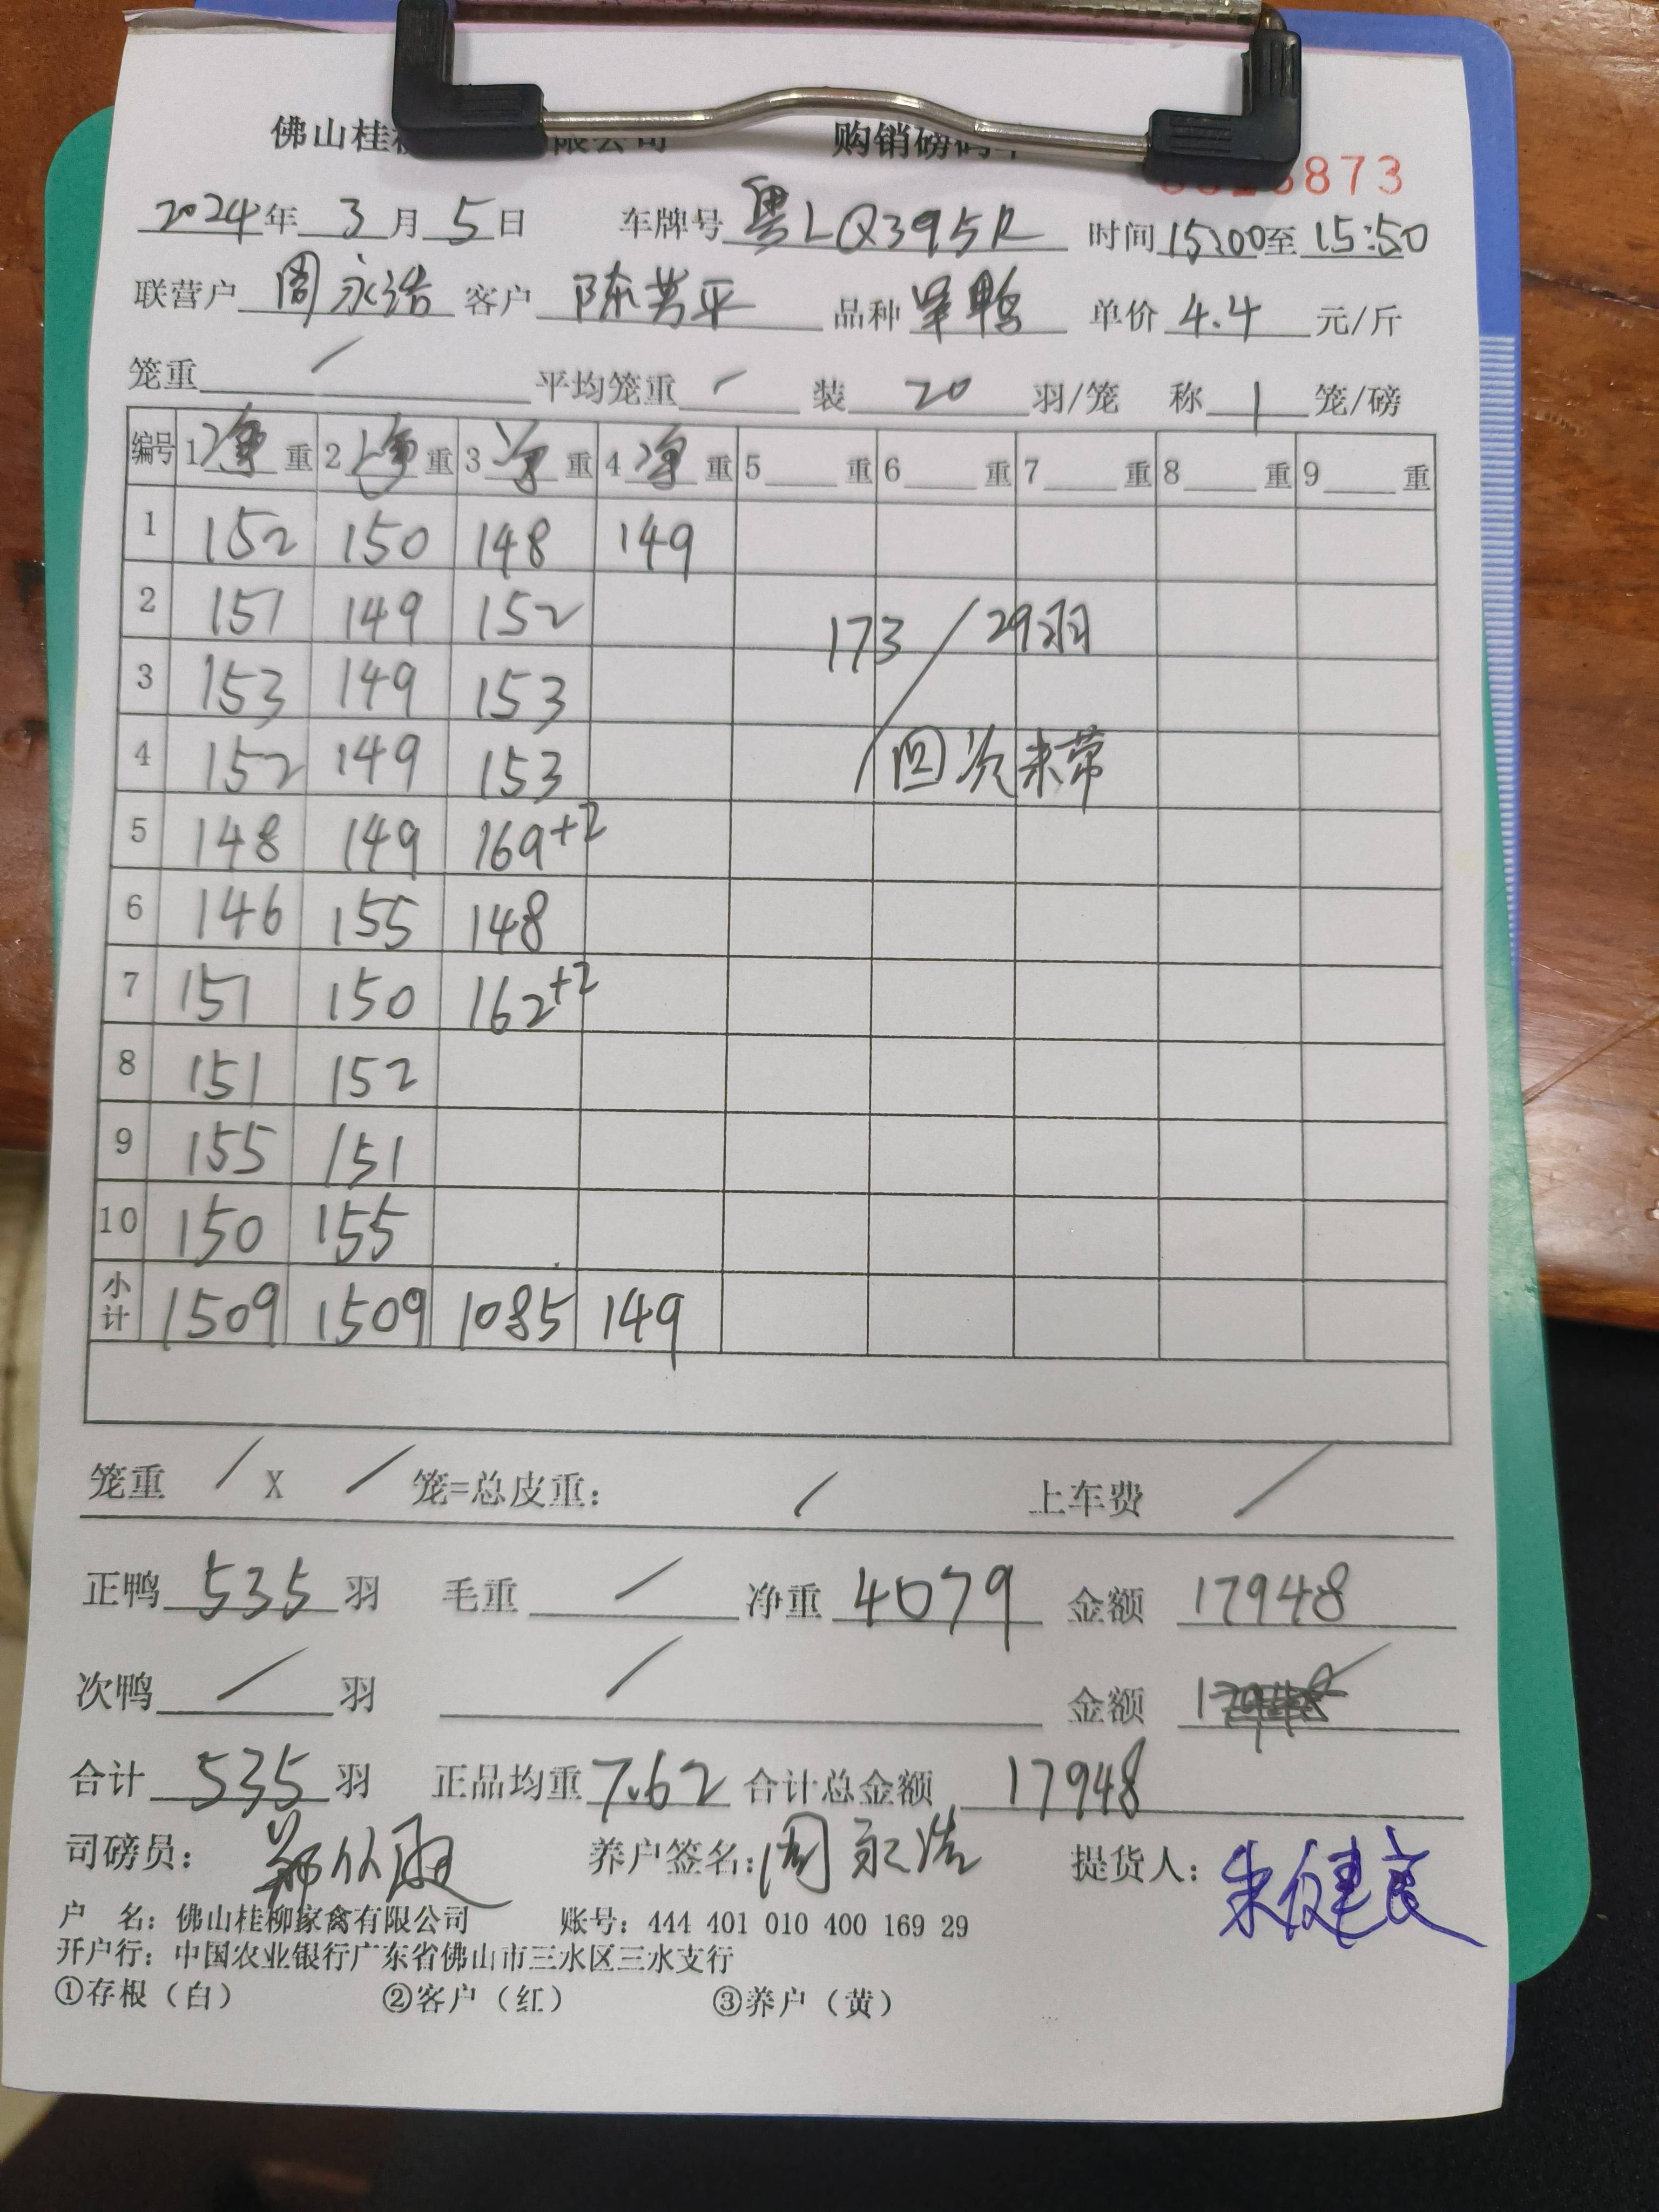 佛山桂 限公司 购销磅码单 873
2024年 3月5日 车牌号 粤LQ395R 时间15:00至15:50
联营户 周永浩 客户 陈芳平 品种 旱鸭 单价 4.4 元/斤
笼重 / 平均笼重 / 装 20 羽/笼 称 1 笼/磅
编号 1 净 重 2 净 重 3 净 重 4 净 重 5 重 6 重 7 重 8 重 9 重
1 152 150 148 149
2 151 149 152
173 / 29羽
3 153 149 153
4 152 149 153
回次未带
5 148 149 169+2
6 146 155 148
7 151 150 162+2
8 151 152
9 155 151
10 150 155
小计 1509 1509 1085 149
笼重 / X / 笼=总皮重: / 上车费 /
正鸭 535 羽 毛重 / 净重 4079 金额 17948
次鸭 / 羽 / 金额
合计 535 羽 正品均重 7.62 合计总金额 17948
司磅员: 养户签名: 周永浩 提货人: 朱健良
户 名: 佛山桂柳家禽有限公司 账号: 444 401 010 400 169 29
开户行: 中国农业银行广东省佛山市三水区三水支行
①存根（白） ②客户（红） ③养户（黄）